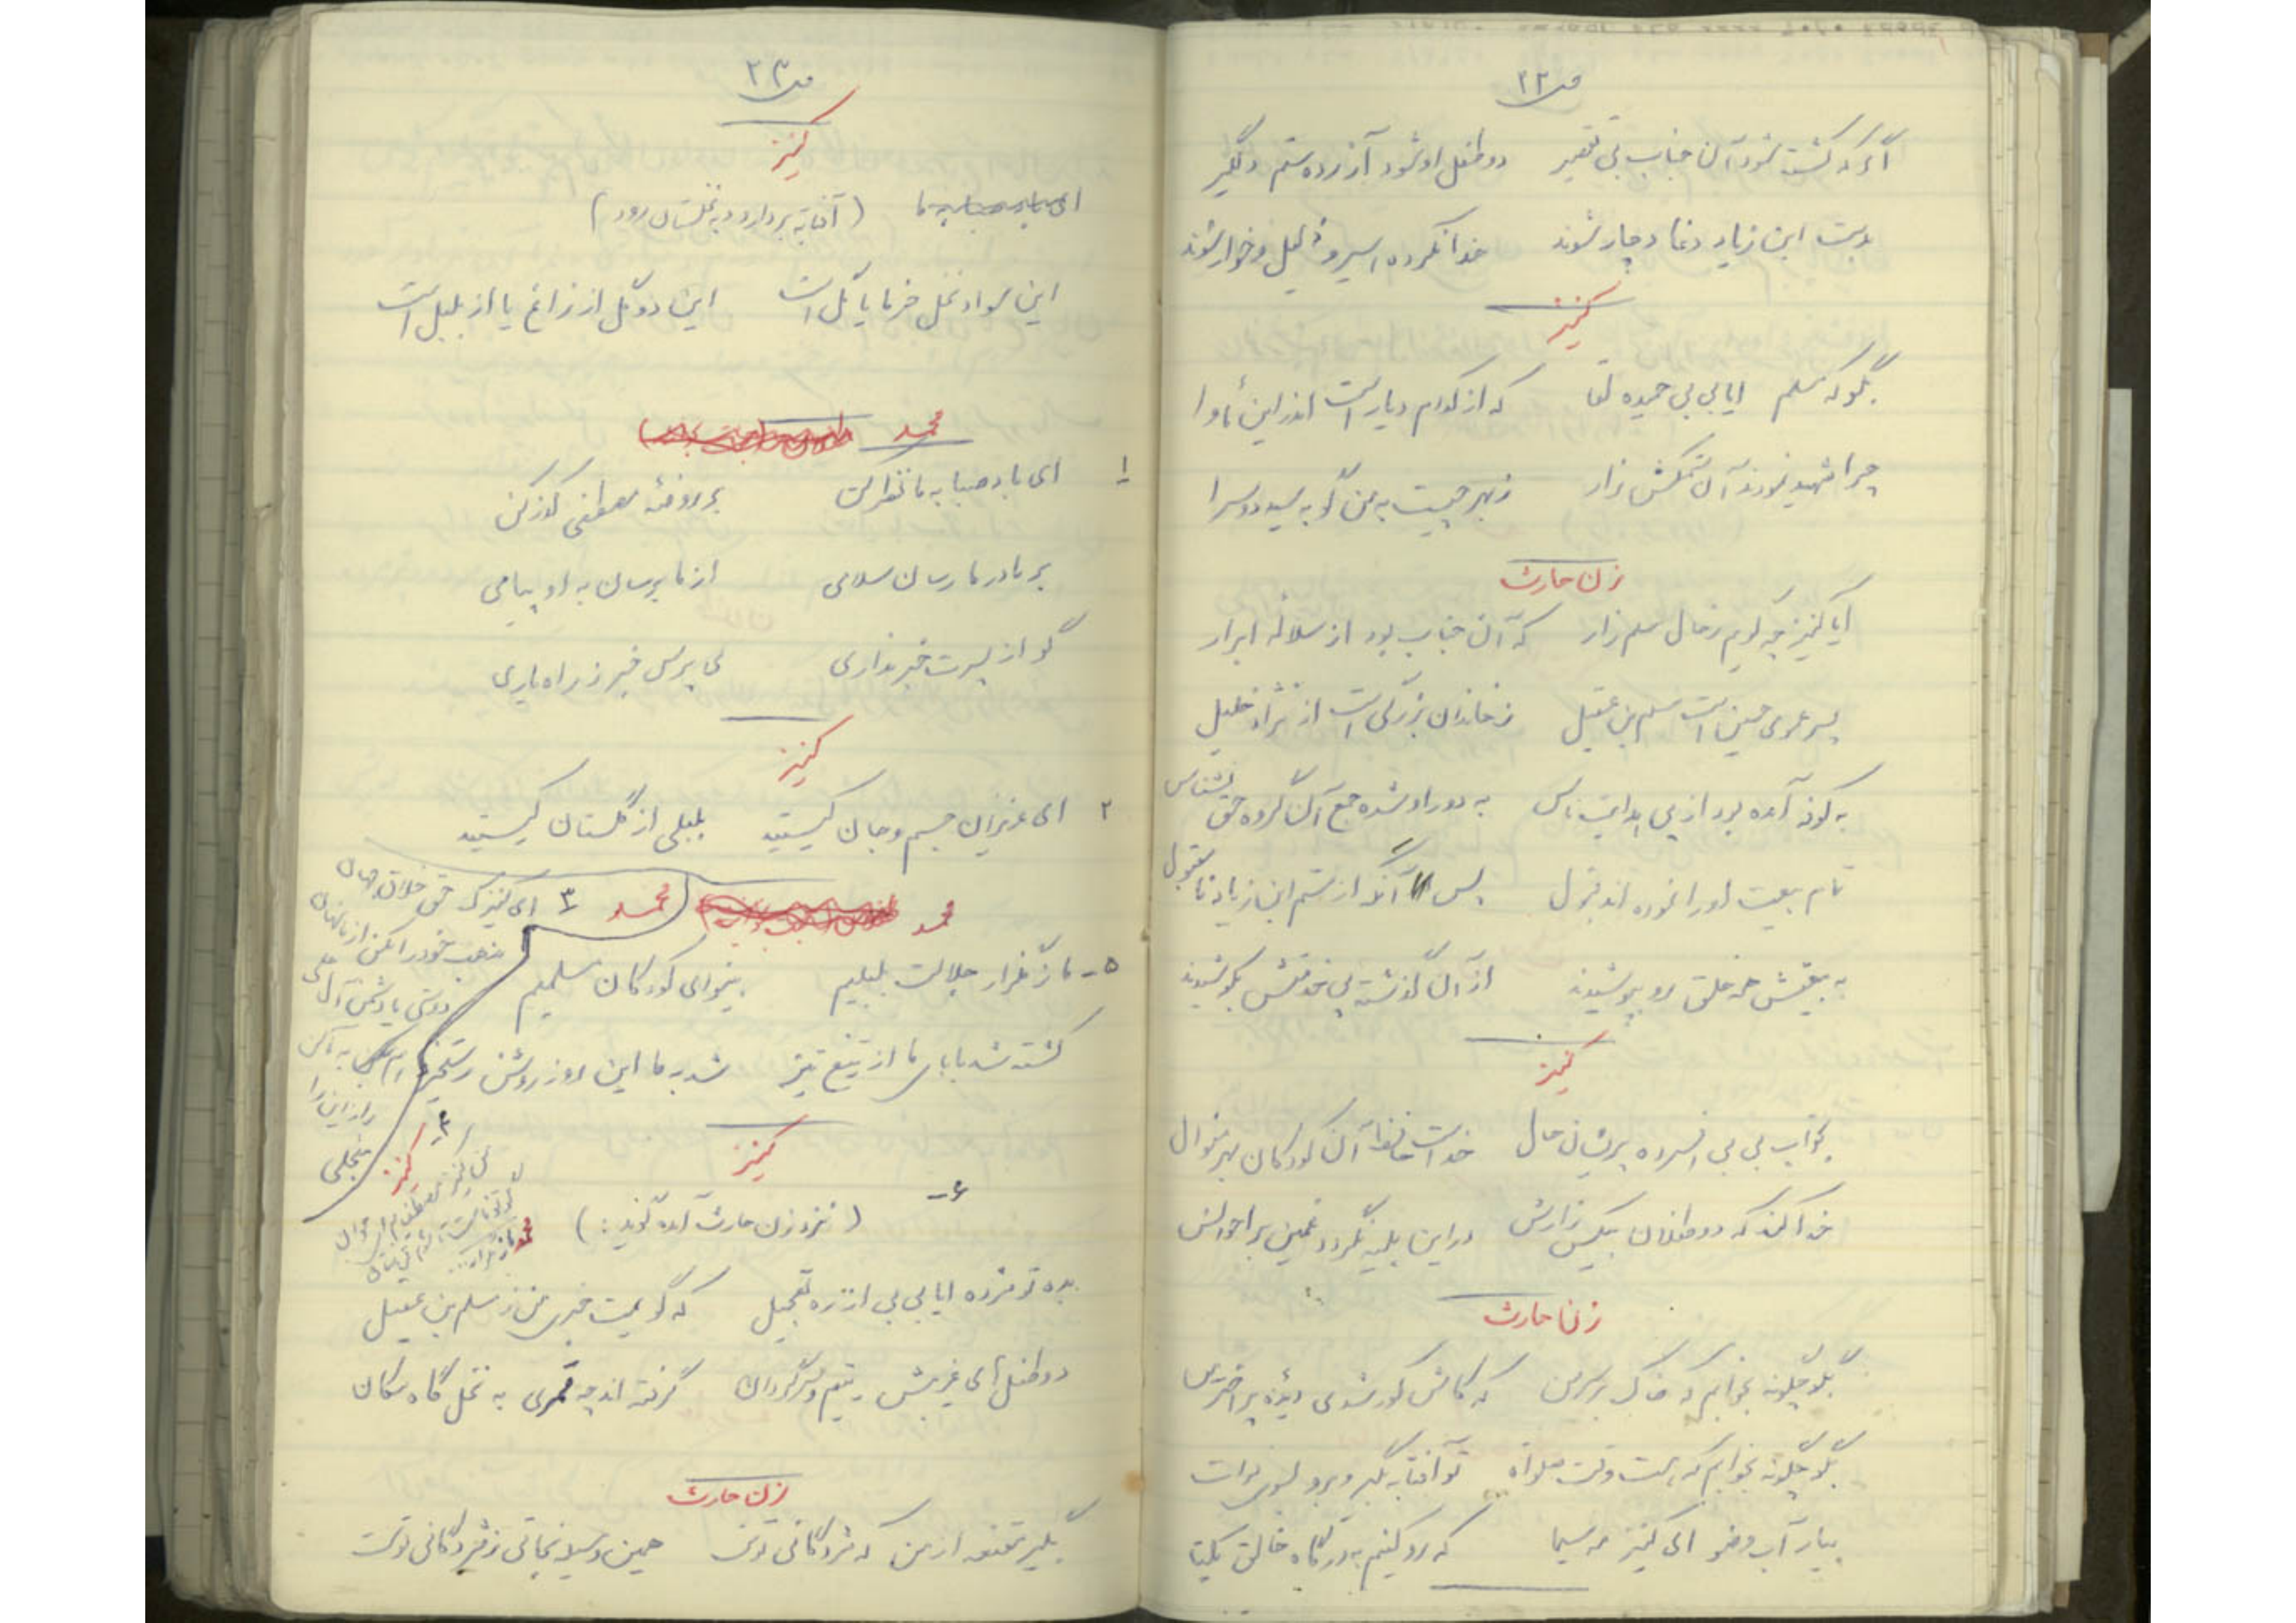 ص ۲۲
اگر که کشته شود آن جناب بی تقصیر دو طفل او شود آزرده ستم دلگیر
بدست ابن زیاد دغا دچار شوند خدا نکرده اسیر و ذلیل و خوار شوند
کنیز
بگو که مسلم ایا بی بی حمیده لقا که از کدام دیار است اندر این مأوا
چرا شهید نمودند آن ستمکش زار ز بهر چیست به من گو به سید دو سرا
زن حارث
ایا کنیز چه گویم ز حال مسلم زار که آن جناب بود از سلاله ابرار
پسر عموی حسین است مسلم بن عقیل ز خاندان بزرگی است از نژاد خلیل
به کوفه آمده بود از پی هدایت ناس به دور او شده جمع آن گروه حق نشناس
تمام بیعت او را نموده اند قبول پس آنگه از ستم ابن زیاد نامقبول
به بیعتش همه خلق رو بپوشیدند از آن گذشته پی خدعتش بکوشیدند
کنیز
بخواب بی بی افسرده پریشان حال خداست حافظ آن کودکان بهر منوال
خدا کند که دو طفلان بیکس زارش در این بلیه نگردد غمین بر احوالش
زن حارث
بگو چگونه بخوابم که خاک بر سر من که کاش کور شدی دیده پر اختر من
بگو چگونه بخوابم که هست وقت صلوة تو آفتابه بگیر و برو بسوی فرات
بیار آب وضو ای کنیز مه سیما که رو کنیم به درگاه خالق یکتا
ص ۲۳
کنیز
(آفتابه بردارد و به نخلستان رود)
این سواد نخل خرما یا گل است این دو گل از زاغ یا از بلبل است
محمد
۱ ای باد صبا به ما نظر کن بر روضه مصطفی گذر کن
بر مادر ما رسان سلامی از ما برسان به او پیامی
گو از پسرت خبر نداری می پرس خبر ز راه یاری
کنیز
۲ ای عزیزان جسم و جان کیستید بلبلی از گلستان کیستید
محمد
۳ ای کنیزک حق خلاق جهان
مذهب خود را مکن از ما نهان
دوستی یا دشمن آل علی
به ما کن
راز این را
منجلی
۴ کنیز
محمد
۵- ما ز گلزار جلالت بلبلیم بینوای کودکان مسلمیم
کشته شد بابای ما از تیغ تیز شد به ما این روز روشن رستخیز
کنیز
۶- (نزد زن حارث آمده گوید:)
بده تو مژده ایا بی بی از ره تعجیل که گویمت خبری من ز مسلم بن عقیل
دو طفل های غریبش یتیم و سرگردان گرفته اند چه قمری به نخل گاه مکان
زن حارث
بگیر مقنعه از من که مژدگانی توست همین وسیله نجاتی ز مژدگانی توست